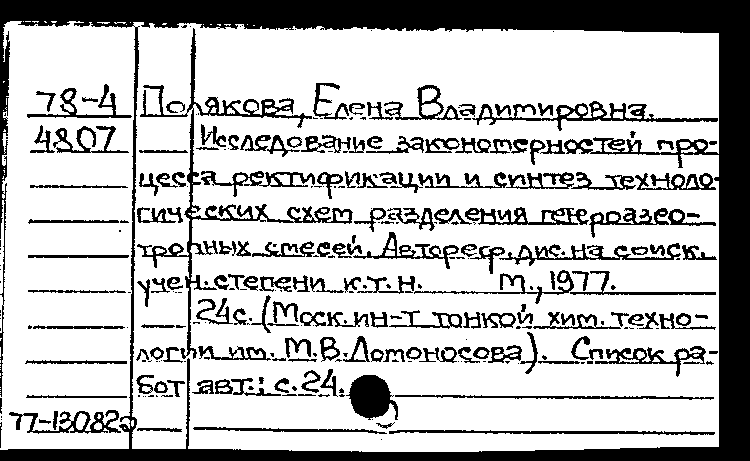 78-4 Полякова, Елена Владимировна.
4807 Исследование закономерностей про-
цесса ректификации и синтез техноло-
гических схем разделения гетероазео-
тропных смесей. Автореф. дис. на соиск.
учен. степени к.т.н. М., 1977.
24с. (Моск. ин-т тонкой хим. техно-
логии им. М.В. Ломоносова). Список ра-
бот авт.: с. 24.
77-13082а